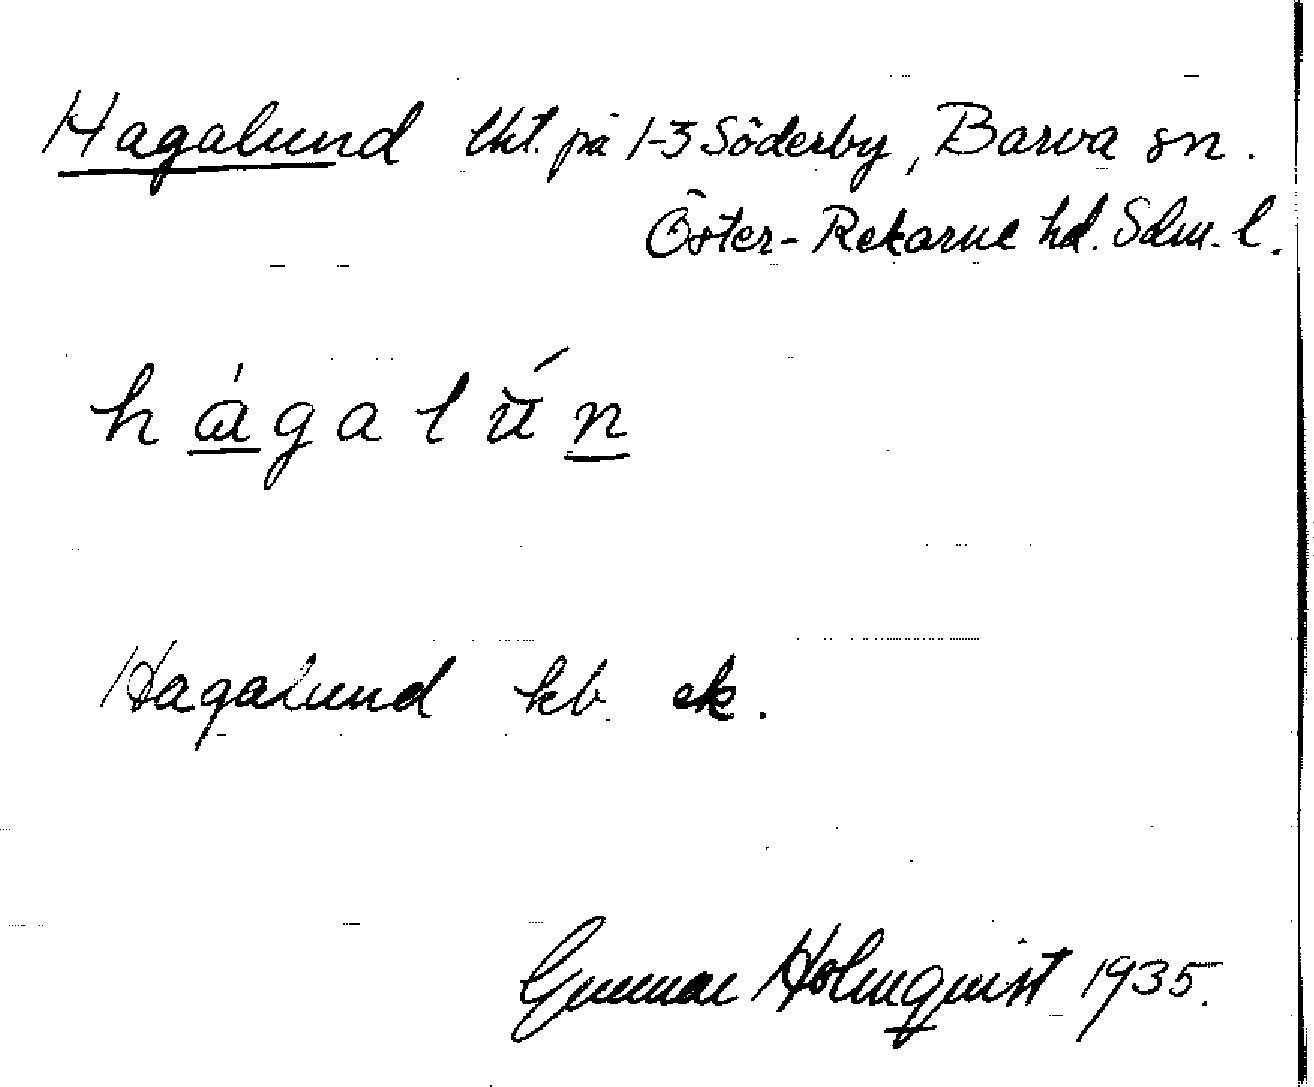 Hagalund lht. på 1-3 Söderby, Barva sn.
Öster-Rekarne hd. Sdm. l.
hágalún
Hagalund kb. ek.
Gunnar Holmquist 1935.